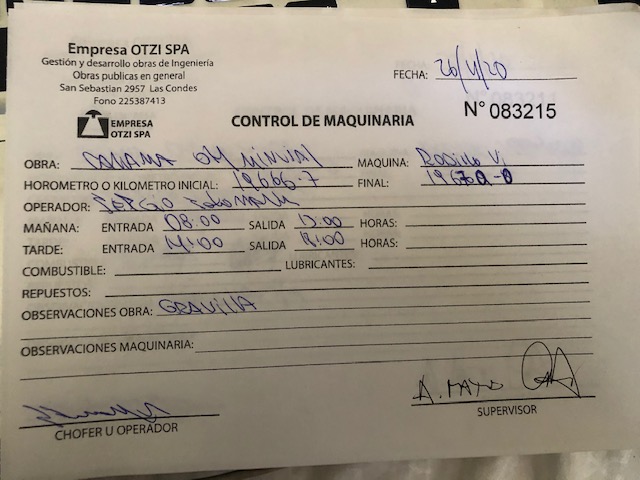 Empresa OTZI SPA
Gestión y desarrollo obras de Ingeniería
Obras publicas en general
San Sebastian 2957 Las Condes
Fono 225387413
FECHA: 26/4/20
EMPRESA
OTZI SPA
CONTROL DE MAQUINARIA
N° 083215
OBRA: MAQUINA: Rodillo V.
HOROMETRO O KILOMETRO INICIAL: 19666.7 FINAL:
OPERADOR: SERGIO
MAÑANA: ENTRADA 08:00 SALIDA 13:00 HORAS:
TARDE: ENTRADA 14:00 SALIDA HORAS:
COMBUSTIBLE: LUBRICANTES:
REPUESTOS:
OBSERVACIONES OBRA: GRAVILLA
OBSERVACIONES MAQUINARIA:
A. MAYO
CHOFER U OPERADOR SUPERVISOR